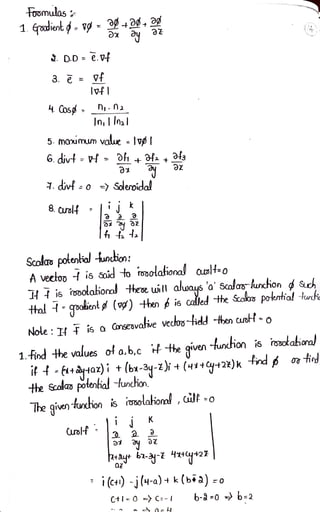 Formulas :-
1. Gradient ϕ = ∇ϕ = ∂ϕ/∂x + ∂ϕ/∂y + ∂ϕ/∂z
2. D.D = e̅.∇f
3. e̅ = ∇f / |∇f|
4. Cosϕ = n₁ . n₂ / |n₁| |n₂|
5. maximum value = |∇ϕ|
6. div f = ∇f = ∂f₁/∂x + ∂f₂/∂y + ∂f₃/∂z
7. div f = 0 => Solenoidal
8. curl f = | i j k |
| ∂/∂x ∂/∂y ∂/∂z |
| f₁ f₂ f₃ |
Scalar potential function:
A vector f is said to irrotational curl f = 0
If f̅ is irrotational there will always 'a' Scalar function ϕ such
that f̅ = gradient ϕ (∇ϕ) then ϕ is called the Scalar potential
Note : If f̅ is a Conservative vector field then curl f = 0
1. find the values of a,b,c if the given function is irrotational
if f = (x+2y+az)i + (bx-3y-z)j + (4x+cy+2z)k find ϕ or find
the Scalar potential function.
The given function is irrotational , curl f = 0
Curl f = | i j k |
| ∂/∂x ∂/∂y ∂/∂z |
| x+2y+az bx-3y-z 4x+cy+2z |
= i(c+1) - j(4-a) + k(b-2) = 0
c+1 = 0 => c = -1 b-2 = 0 => b = 2